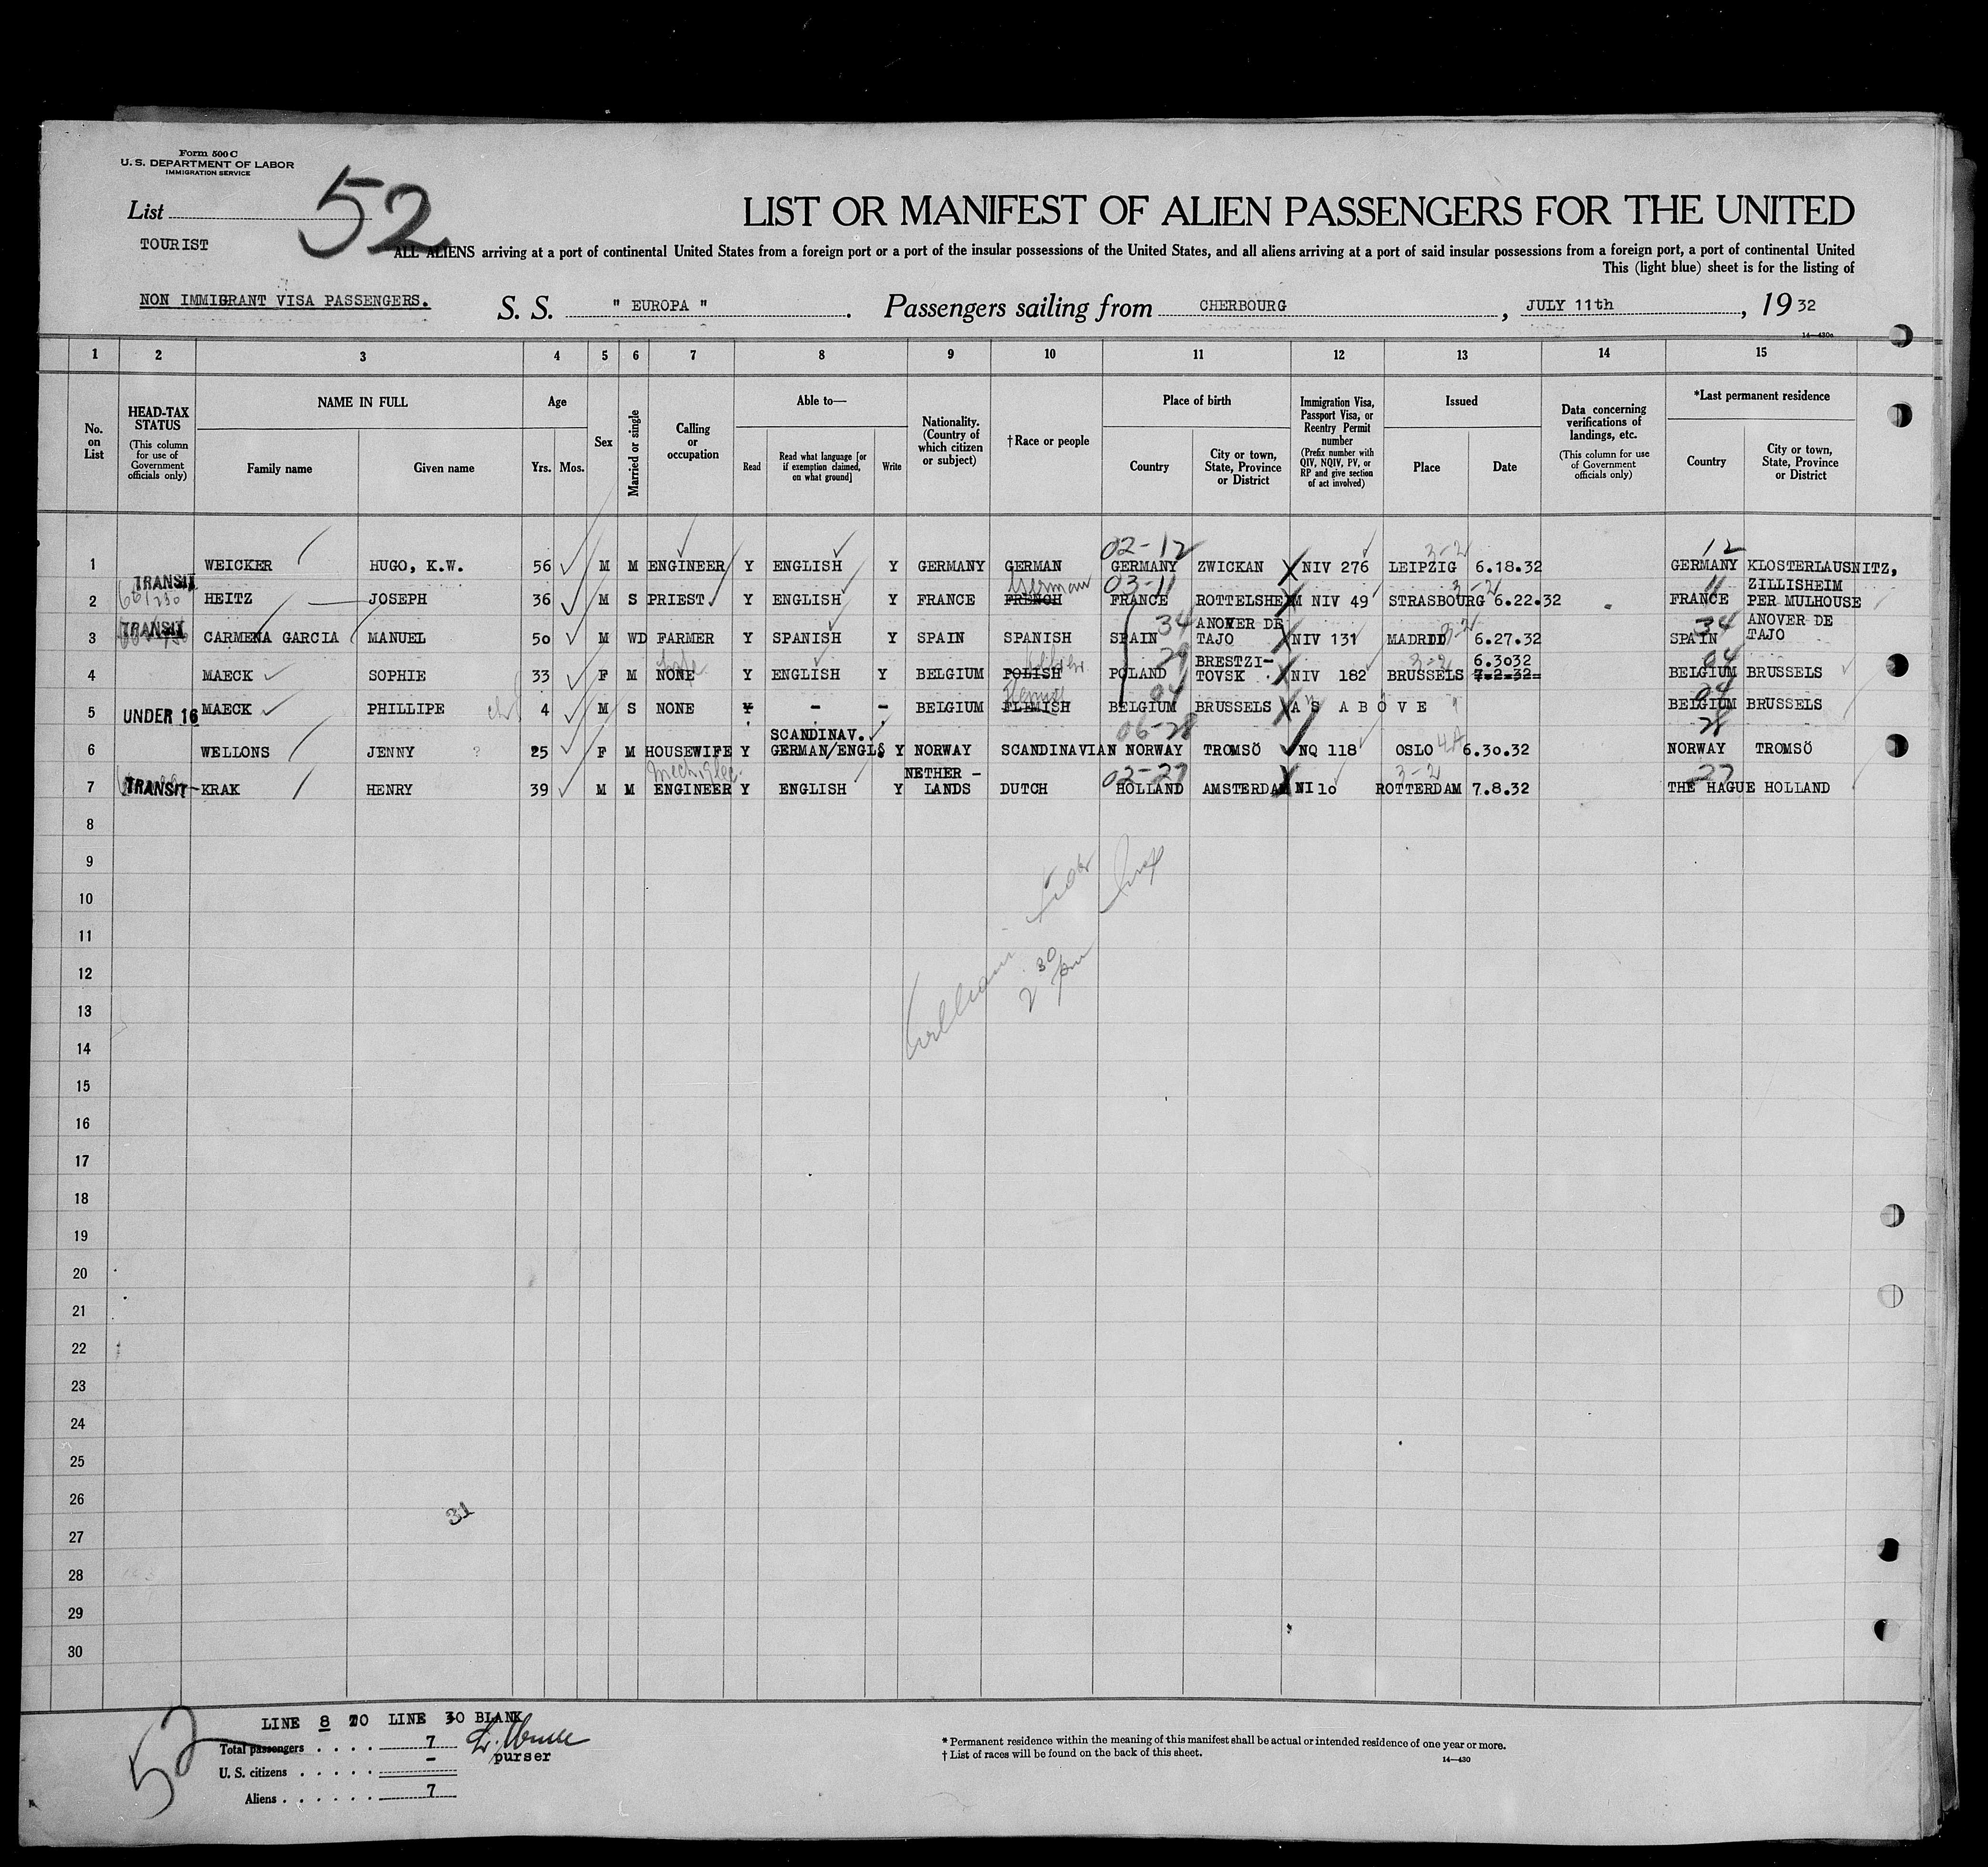 Form 500 C
U. S. DEPARTMENT OF LABOR
IMMIGRATION SERVICE
List 52
LIST OR MANIFEST OF ALIEN PASSENGERS FOR THE UNITED
TOURIST
ALL ALIENS arriving at a port of continental United States from a foreign port or a port of the insular possessions of the United States, and all aliens arriving at a port of said insular possessions from a foreign port, a port of continental United
This (light blue) sheet is for the listing of
NON IMMIGRANT VISA PASSENGERS. S. S. " EUROPA ". Passengers sailing from CHERBOURG, JULY 11th, 19 32
14—430a
1 2 3 4 5 6 7 8 9 10 11 12 13 14 15
No. on List
HEAD-TAX STATUS (This column for use of Government officials only)
NAME IN FULL
Family name Given name
Age
Yrs. Mos.
Sex
Married or single
Calling or occupation
Able to—
Read
Read what language [or if exemption claimed, on what ground]
Write
Nationality. (Country of which citizen or subject)
†Race or people
Place of birth
Country
City or town, State, Province or District
Immigration Visa, Passport Visa, or Reentry Permit number (Prefix number with QIV, NQIV, PV, or RP and give section of act involved)
Issued
Place Date
Data concerning verifications of landings, etc. (This column for use of Government officials only)
*Last permanent residence
Country
City or town, State, Province or District
02-12 3-2 12
1 WEICKER HUGO, K.W. 56 M M ENGINEER Y ENGLISH Y GERMANY GERMAN GERMANY ZWICKAN NIV 276 LEIPZIG 6.18.32 GERMANY KLOSTERLAUSNITZ,
TRANSIT German 03-11 3-2 11 ZILLISHEIM
2 HEITZ JOSEPH 36 M S PRIEST Y ENGLISH Y FRANCE FRENCH FRANCE ROTTELSHEIM NIV 49 STRASBOURG 6.22.32 FRANCE PER MULHOUSE
TRANSIT 34 ANOVER DE 3-2 34 ANOVER DE
3 CARMENA GARCIA MANUEL 50 M WD FARMER Y SPANISH Y SPAIN SPANISH SPAIN TAJO NIV 131 MADRID 6.27.32 SPAIN TAJO
29 BRESTZI- 3-2 6.3032 04
4 MAECK SOPHIE 33 F M NONE Y ENGLISH Y BELGIUM POLISH POLAND TOVSK NIV 182 BRUSSELS 7.2.32 BELGIUM BRUSSELS
04 04
5 UNDER 16 MAECK PHILLIPE 4 M S NONE Y - - BELGIUM FLEMISH BELGIUM BRUSSELS A S A B O V E BELGIUM BRUSSELS
SCANDINAV. 06-28 4A 28
6 WELLONS JENNY ? 25 F M HOUSEWIFE Y GERMAN/ENGL. Y NORWAY SCANDINAVIAN NORWAY TROMSÖ NQ 118 OSLO 6.30.32 NORWAY TROMSÖ
NETHER - 02-27 3-2 27
7 TRANSIT KRAK HENRY 39 M M ENGINEER Y ENGLISH Y LANDS DUTCH HOLLAND AMSTERDAM NI 10 ROTTERDAM 7.8.32 THE HAGUE HOLLAND
8
9
10
11
12
13
14
15
16
17
18
19
20
21
22
23
24
25
26
31
27
28
29
30
William
2 30 pm
LINE 8 TO LINE 30 BLANK
52
Total passengers . . . . 7
purser
U. S. citizens . . . . . -
Aliens . . . . . . 7
* Permanent residence within the meaning of this manifest shall be actual or intended residence of one year or more.
† List of races will be found on the back of this sheet.
14—430